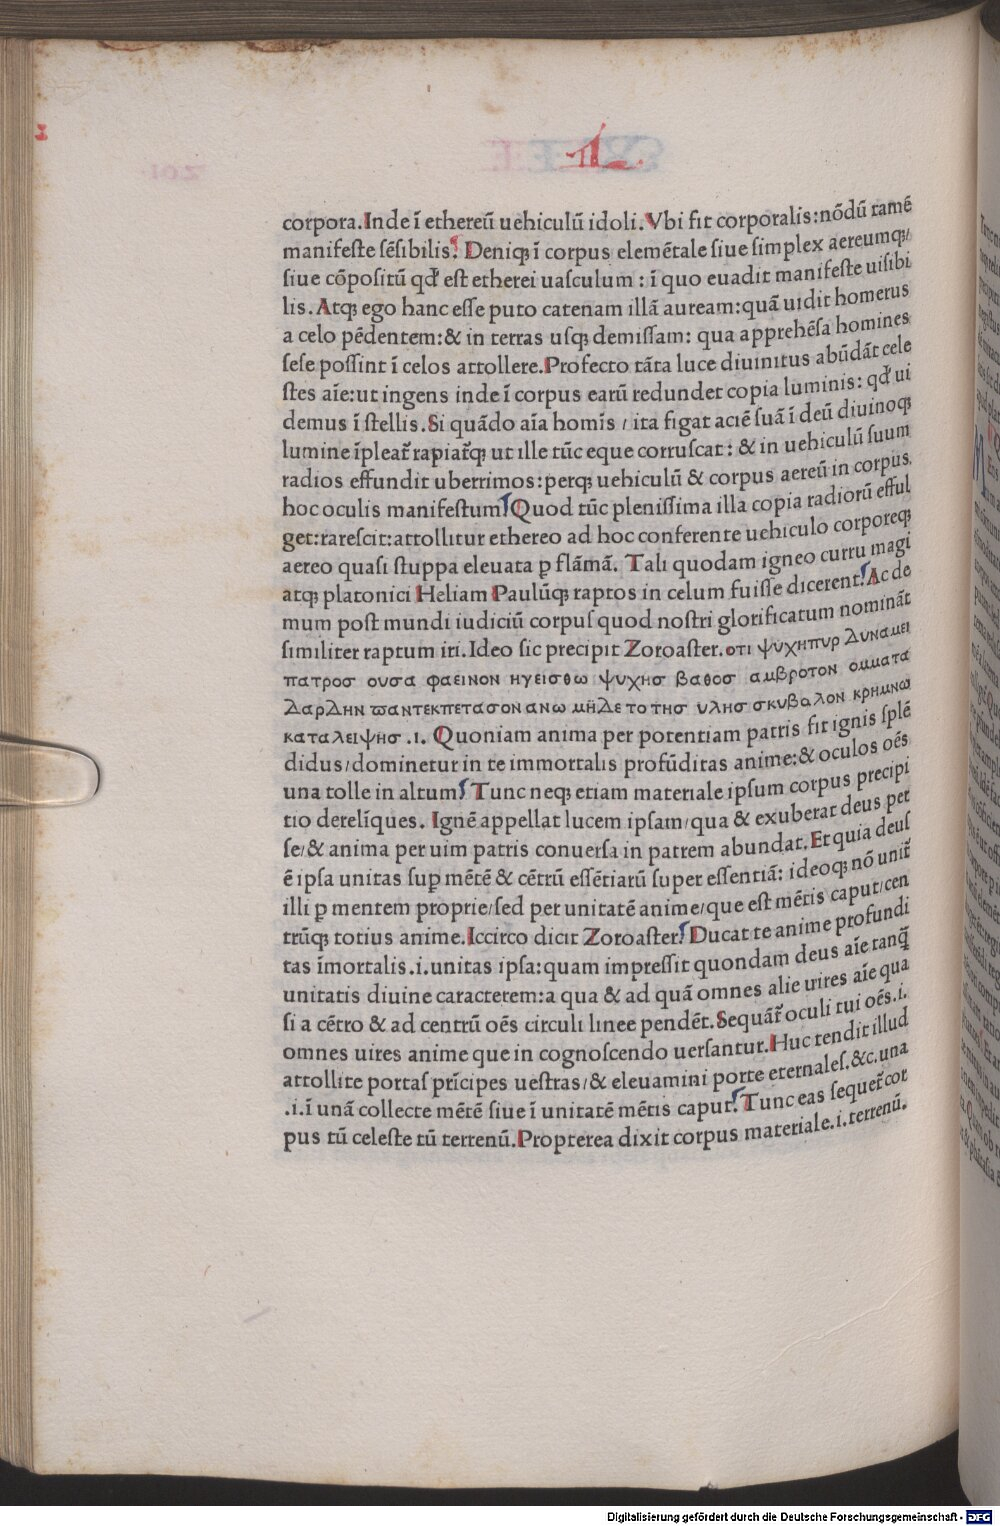 corpora. Inde ī ethereū uehiculū idoli. Vbi fit corporalis: nōdū tamē
manifeſte ſēſibilis. Deniqꝫ ī corpus elemētale ſiue ſimplex aereumqꝫ/
ſiue cōpoſitū qđ eſt etherei uaſculum : ī quo euadit manifeſte uiſibi
lis. Atqꝫ ego hanc eſſe puto catenam illā auream: quā uidit homerus
a celo pēdentem: & in terras uſqꝫ demiſſam: qua apprehēſa homines
ſeſe poſſint ī celos attollere. Profecto tāta luce diuinitus abūdāt cele
ſtes aīe: ut ingens inde ī corpus earū redundet copia luminis: qđ ui
demus ī ſtellis. Si quādo aīa homīs / ita figat aciē ſuā ī deū diuinoqꝫ
lumine īpleat̄ rapiat̄qꝫ ut ille tūc eque corruſcat: & in uehiculū ſuum
radios effundit uberrimos: perqꝫ uehiculū & corpus aereū in corpus.
hoc oculis manifeſtum Quod tūc pleniſſima illa copia radiorū efful
get: rareſcit: attollitur ethereo ad hoc conferente uehiculo corporeqꝫ
aereo quaſi ſtuppa eleuata ꝑ flāmā. Tali quodam igneo curru magi
atqꝫ platonici Heliam Paulūqꝫ raptos in celum fuiſſe dicerent. Ac de
mum poſt mundi iudiciū corpuſ quod noſtri glorificatum nomināt
ſimiliter raptum iri. Ideo ſic precipit Zoroaſter. οτι ψυχηπυρ Δυναμει
πατροσ ουσα φαεινον ηγεισθω ψυχησ βαθοσ αμβροτον ομματα
ΔαρΔην ϖαντεκπετασον ανω μηΔε το τησ υλησ σκυβαλον κρημνω
καταλειψησ .i. Quoniam anima per potentiam patris fit ignis ſplē
didus/dominetur in te immortalis profūditas anime: & oculos oēs
una tolle in altum Tunc neqꝫ etiam materiale ipſum corpus precipi
tio derelīques. Ignē appellat lucem ipſam/qua & exuberat deus per
ſe/& anima per uim patris conuerſa in patrem abundat. Et quia deuſ
ē ipſa unitas ſuꝑ mētē & cētrū eſſētiarū ſuper eſſentiā: ideoqꝫ nō unit̄
illi ꝑ mentem proprie/ſed per unitatē anime/que eſt mētis caput/cen
trūqꝫ totius anime. Iccirco dicit Zoroaſter. Ducat te anime profundi
tas īmortalis .i. unitas ipſa: quam impreſſit quondam deus aīe tanq̄
unitatis diuine caracterem: a qua & ad quā omnes alie uires aīe qua
ſi a cētro & ad centrū oēs circuli linee pendēt. Sequāt̄ oculi tui oēs .i.
omnes uires anime que in cognoſcendo uerſantur. Huc tendit illud
attollite portaſ prīcipes ueſtras/& eleuamini porte eternaleſ. &c. una
.i. ī unā collecte mētē ſiue ī unitatē mētis caput. Tunc eas ſequet̄ cor
pus tū celeſte tū terrenū. Propterea dixit corpus materiale .i. terrenū.
Digitalisierung gefördert durch die Deutsche Forschungsgemeinschaft - DFG